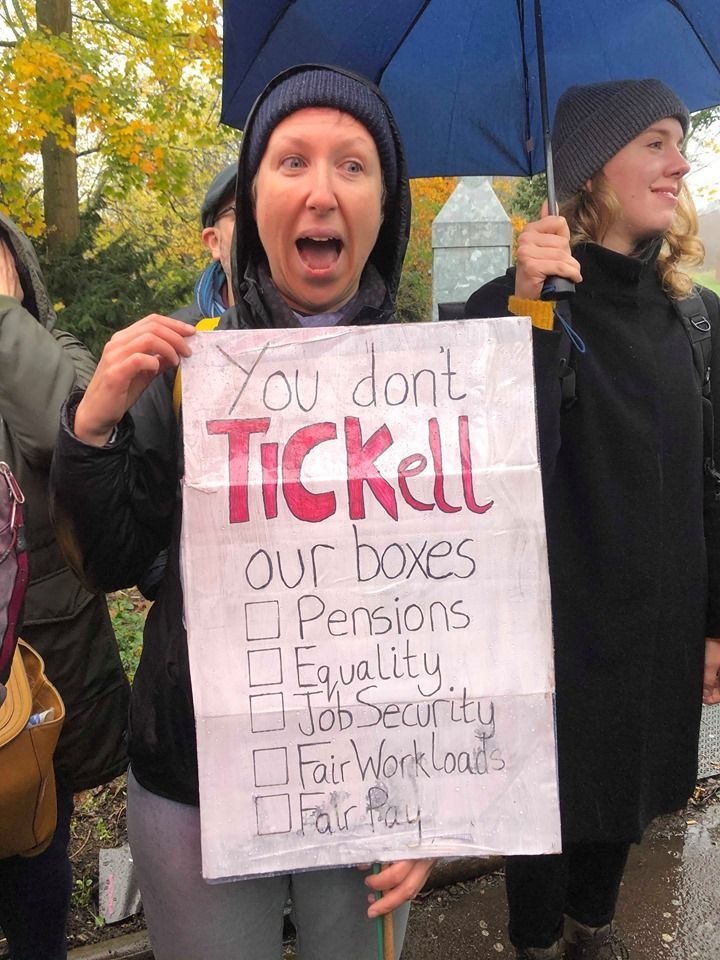 You don't
TICKell
our boxes
Pensions
Equality
Job Security
Fair Workloads
Fair Pay